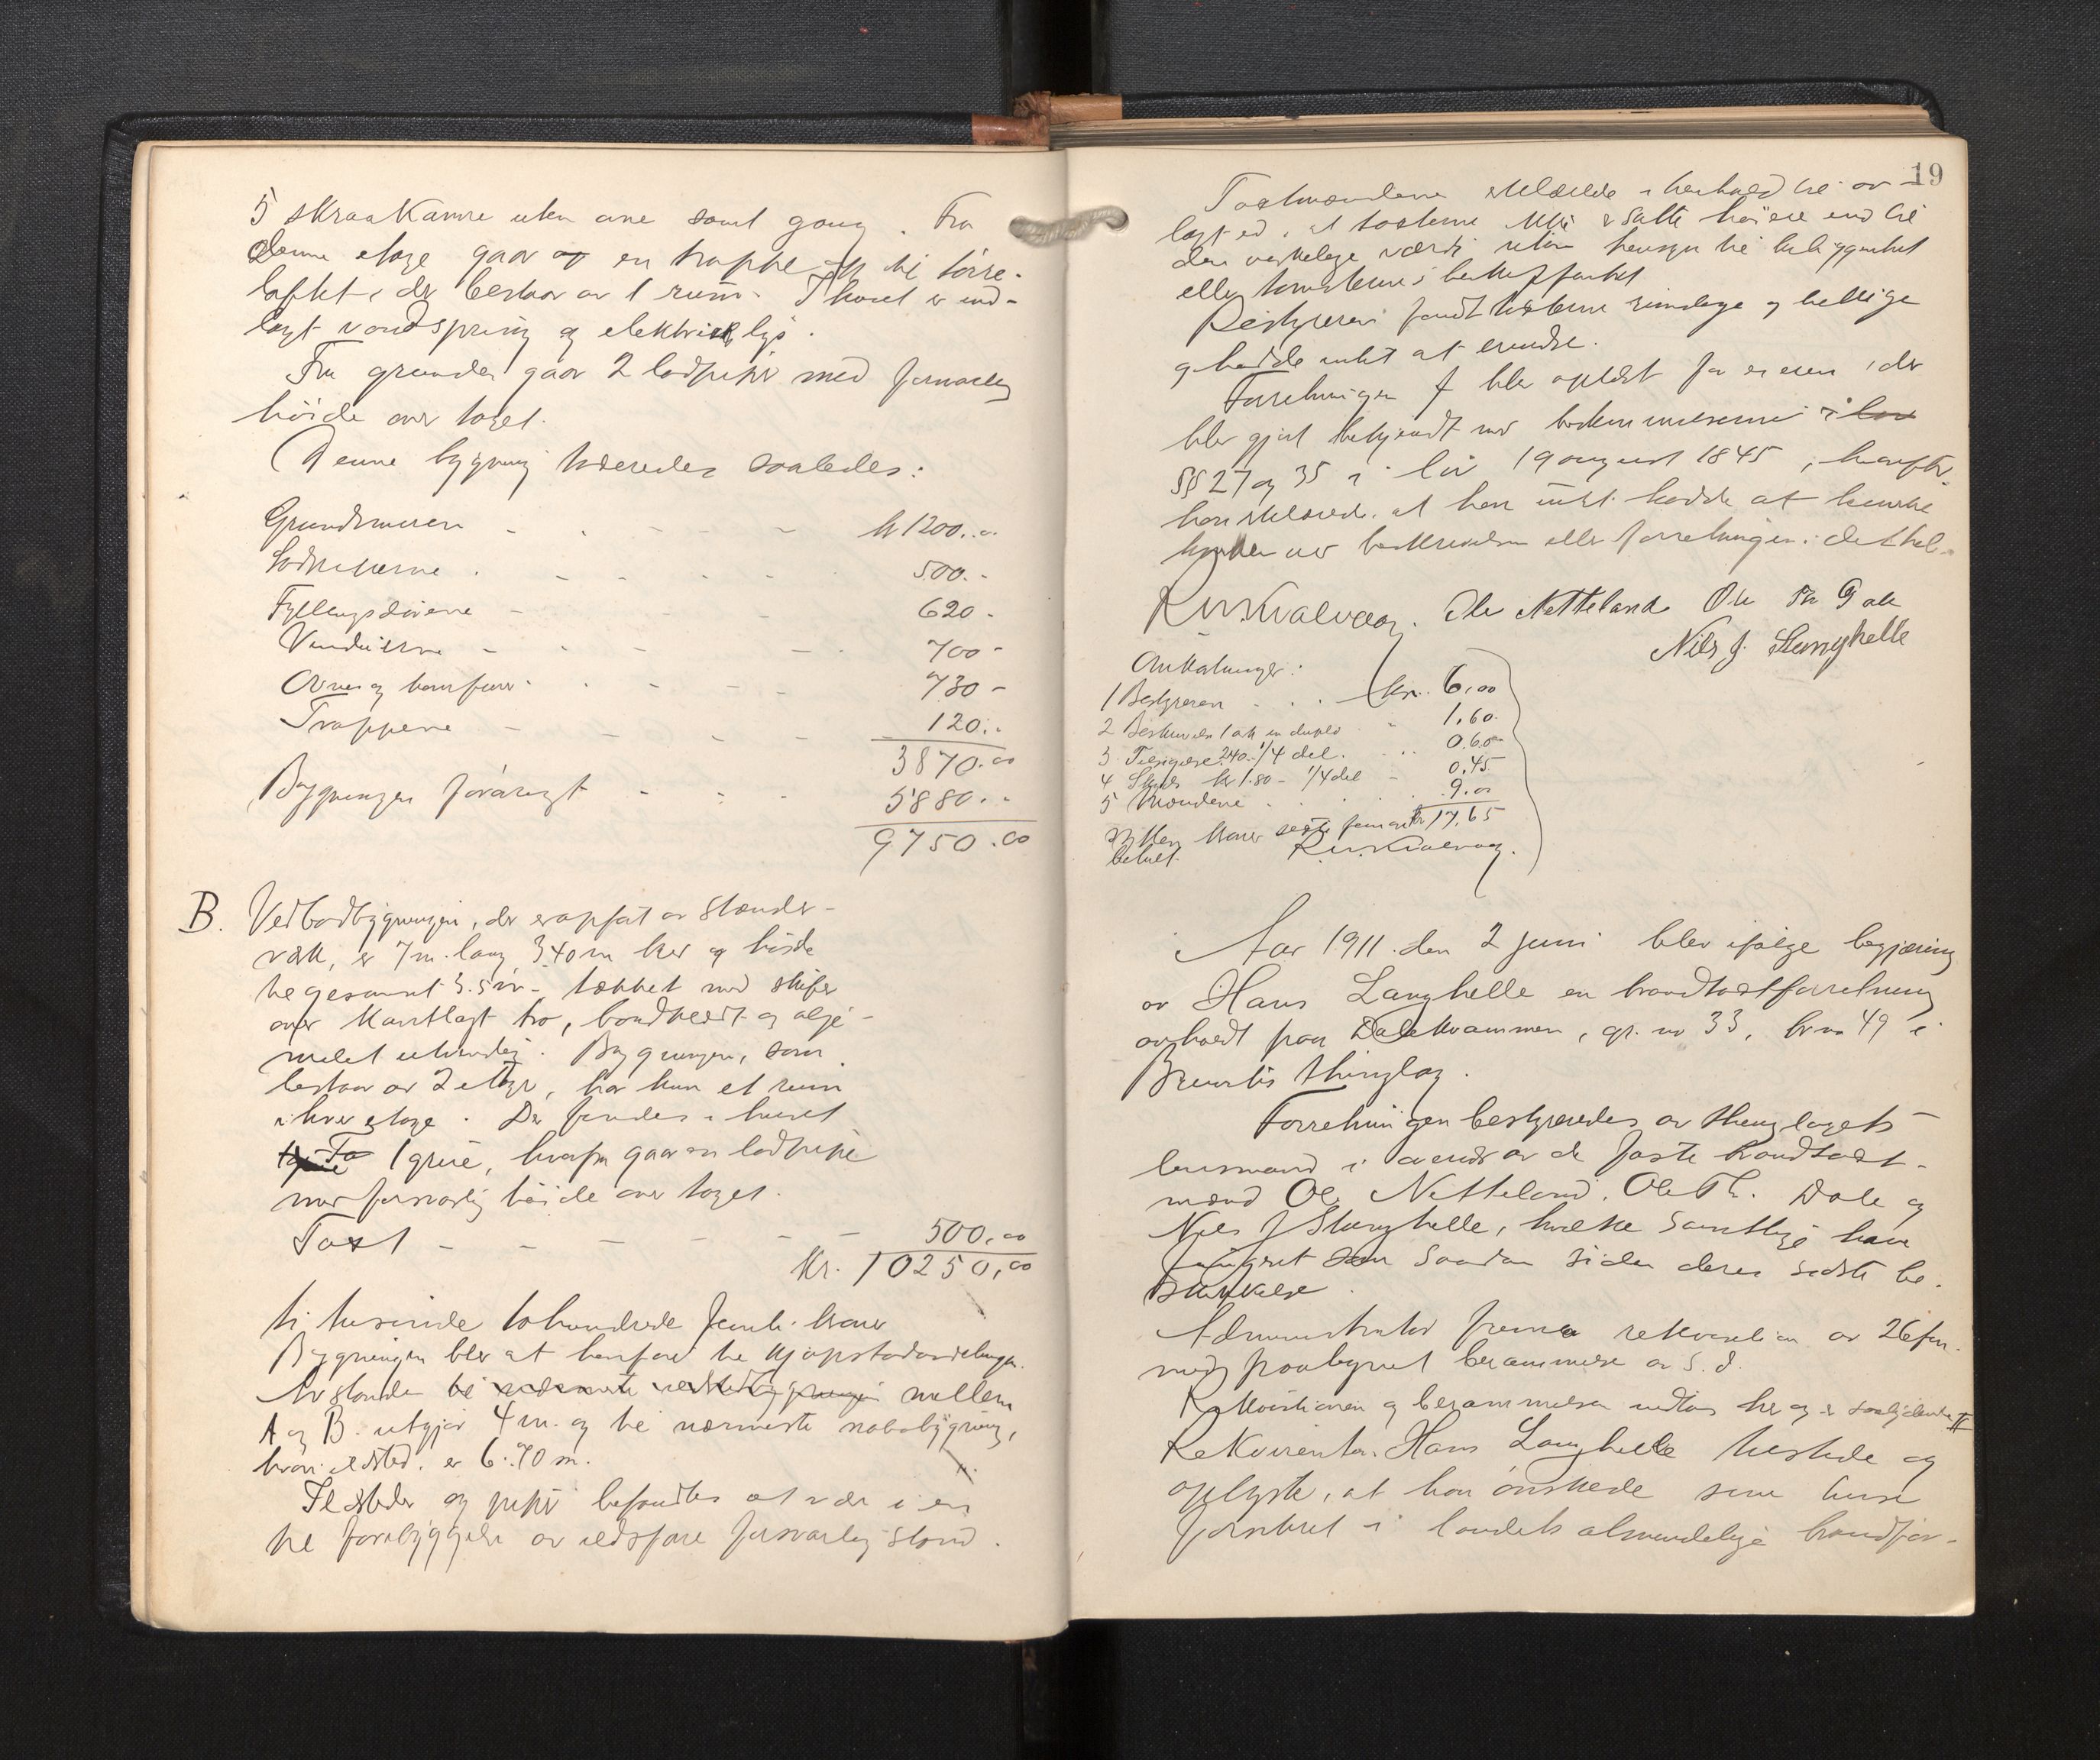 5 skraakamre uten ovne samt gang. Fra
denne etage gaar op en trappe op til tørre-
loftet, der bestaar av 1 rum. I huset er ind-
lagt vandspring og elektrisk lys.
Fra grunden gaar 2 lodpiper med forsvarlig
høide over taget.
Denne bygning værderes saaledes:
Grundmuren - - - - kr 1200.00
Lodpiperne - - - - 500.-
Fyllingsdørene - 620.-
Vinduerne - - - - 700 -
Ovner og komfurer - - - 730 -
Trappene - - - - 120.-
3870.00
Bygningen forøvrigt - - - 5880.-
9750.00
B. Vedbodbygningen, der er opført av stænder-
verk, er 7 m. lang 3.40 m bred og høide
til gesimset 3.5 m - tækket med skifer
over kantlagt tro, bordklædt og olje-
malet utvendig. Bygningen, som
bestaar av 2 etager, har kun et rum
i hver etage. Der findes i huset
1 grue, hvorfra gaar en lodpipe
med forsvarlig høide over taget.
Taxt - - - - - - 500,00
Kr. 10250,00
ti tusinde tohundrede femti kroner
Bygningen blev at henføre til kjøpstadavdelingen.
Avstanden til nærmeste vedbodbygningen mellem
A og B utgjør 4 m. og til nærmeste nabobygning,
hvori ildsted, er 6.70 m.
Ildsteder og piper befandtes at være i en
til forebyggelse av ildsfare forsvarlig stand.
19
Taxtmændene erklærede i henhold til av-
lagt ed, at taxterne ikke er satte høiere end til
den virkelige værdi uten hensyn til beliggenhet
eller tomternes beskaffenhet
Bestyreren fandt taxterne rimelige og billige
og hadde intet at erindre.
Forretningen blev oplæst for eieren, der
blev gjort bekjendt med bestemmelserne i lov
§§ 27 og 35 i lov 19 august 1845, hvorefter
han erklærede, at han intet hadde at bemerke
hverken ved beskrivelsen eller forretningen i det hele.
R. W. Kvalvaag. Ole Netteland Ole Th Dale
Nils J. Stanghelle
Omkostninger:
1 Bestyreren . . . kr. 6,00
2 Beskrivels 1 ark in duplo - 1,60
3 Tilsigelse 240 - 1/4 del . . 0.60
4 Skyds kr 1.80 - 1/4 del - 0,45
5 Mændene . . . . 9.00
kr 17,65
Sytten kroner sexti fem øre
betalt. R. W. Kvalvaag.
Aar 1911 den 2 juni blev ifølge begjæring
av Hans Langhelle en brandtaxtforretning
avholdt paa Dalekvammen, gr. no 33, br no 49 i
Bruvik thinglag.
Forretningen bestyredes av thinglagets
lensmand i overvær av de faste brandtaxt-
mænd Ole Netteland, Ole Th. Dale og
Nils J Stanghelle, hvilke samtlige have
fungeret som saadan siden deres sidste be-
skikkelse.
Administrator fremla rekvisition av 26 f.m.
med paategnet berammelse av s. d.
Rekvisitionen og berammelsen indtas her og er saalydende #
Rekvirenten Hans Langhelle tilstede og
oplyste, at han ønskede sine huse
forsikret i landets almindelige brandfor-